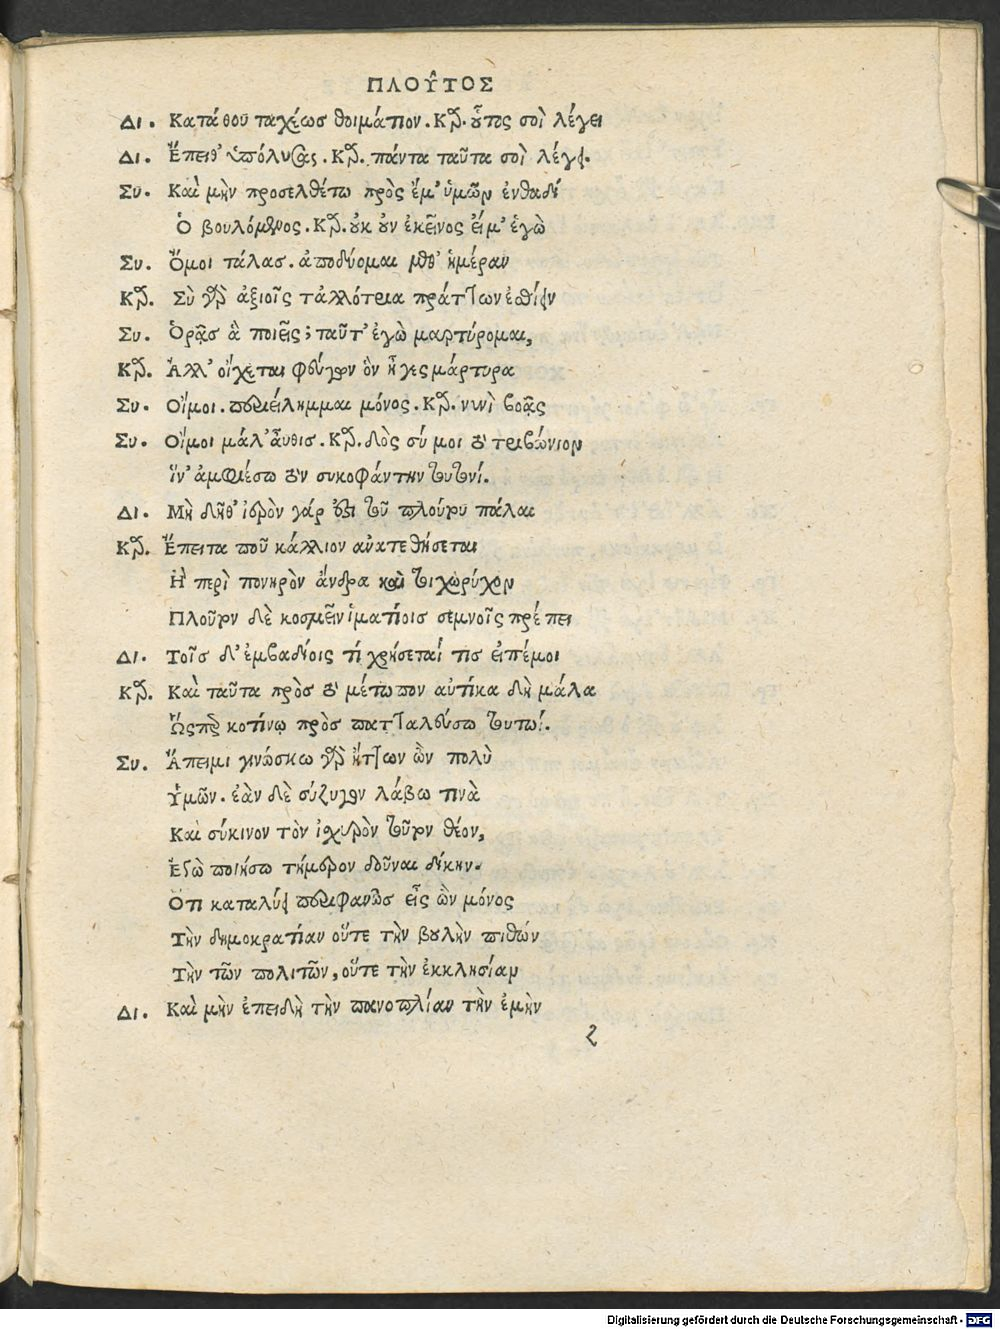 ΠΛΟΥ͂ΤΟΣ
ΔΙ. Κατάθου ταχέως θοιμάτιον. Κρ. οὗτος σοὶ λέγει
ΔΙ. Ἔπειθ' ὑπόλυσαι. Κρ. πάντα ταῦτα σοὶ λέγει.
Συ. Καὶ μὴν προσελθέτω πρὸς ἔμ' ὑμῶν ἐνθαδί
Ὁ βουλόμενος. Κρ. οὐκ οὖν ἐκεῖνος εἴμ' ἐγὼ
Συ. Ὄμοι τάλας. ἀποδύομαι μεθ' ἡμέραν
Κρ. Σὺ γὰρ ἀξιοῖς τἀλλότρια πράττων ἐσθίειν
Συ. Ὁρᾷς ἃ ποιεῖς; ταῦτ' ἐγὼ μαρτύρομαι,
Κρ. Ἀλλ' οἴχεται φεύγων ὃν ἦγες μάρτυρα
Συ. Οἴμοι. περιείλημμαι μόνος. Κρ. νυνὶ βοᾷς
Συ. Οἴμοι μάλ' αὖθις. Κρ. δὸς σύ μοι τὸ τριβώνιον
ἵν' ἀμφιέσω τὸν συκοφάντην τουτονί.
ΔΙ. Μὴ δῆθ' ἱερὸν γάρ ἐστι τοῦ πλούτου πάλαι
Κρ. Ἔπειτα ποῦ κάλλιον ἀνατεθήσεται
Ἢ περὶ πονηρὸν ἄνδρα καὶ τοιχωρύχον
Πλοῦτον δὲ κοσμεῖν ἱματίοις σεμνοῖς πρέπει
ΔΙ. Τοῖς δ' ἐμβαδίοις τί χρήσεταί τις εἰπέ μοι
Κρ. Καὶ ταῦτα πρὸς τὸ μέτωπον αὐτίκα δὴ μάλα
Ὥσπερ κοτίνῳ προσπατταλεύσω τουτωί.
Συ. Ἄπειμι γινώσκω γὰρ ἥττων ὢν πολὺ
Ὑμῶν. ἐὰν δὲ σύζυγον λάβω τινὰ
Καὶ σύκινον τὸν ἰσχυρὸν τοῦτον θέον,
Ἐγὼ ποιήσω τήμερον δοῦναι δίκην.
Ὁτι καταλύει περιφανῶς εἷς ὢν μόνος
Τὴν δημοκρατίαν οὔτε τὴν βουλὴν πιθών
Τὴν τῶν πολιτῶν, οὔτε τὴν ἐκκλησίαν
ΔΙ. Καὶ μὴν ἐπειδὴ τὴν πανοπλίαν τὴν ἐμὴν
ζ
Digitalisierung gefördert durch die Deutsche Forschungsgemeinschaft - DFG